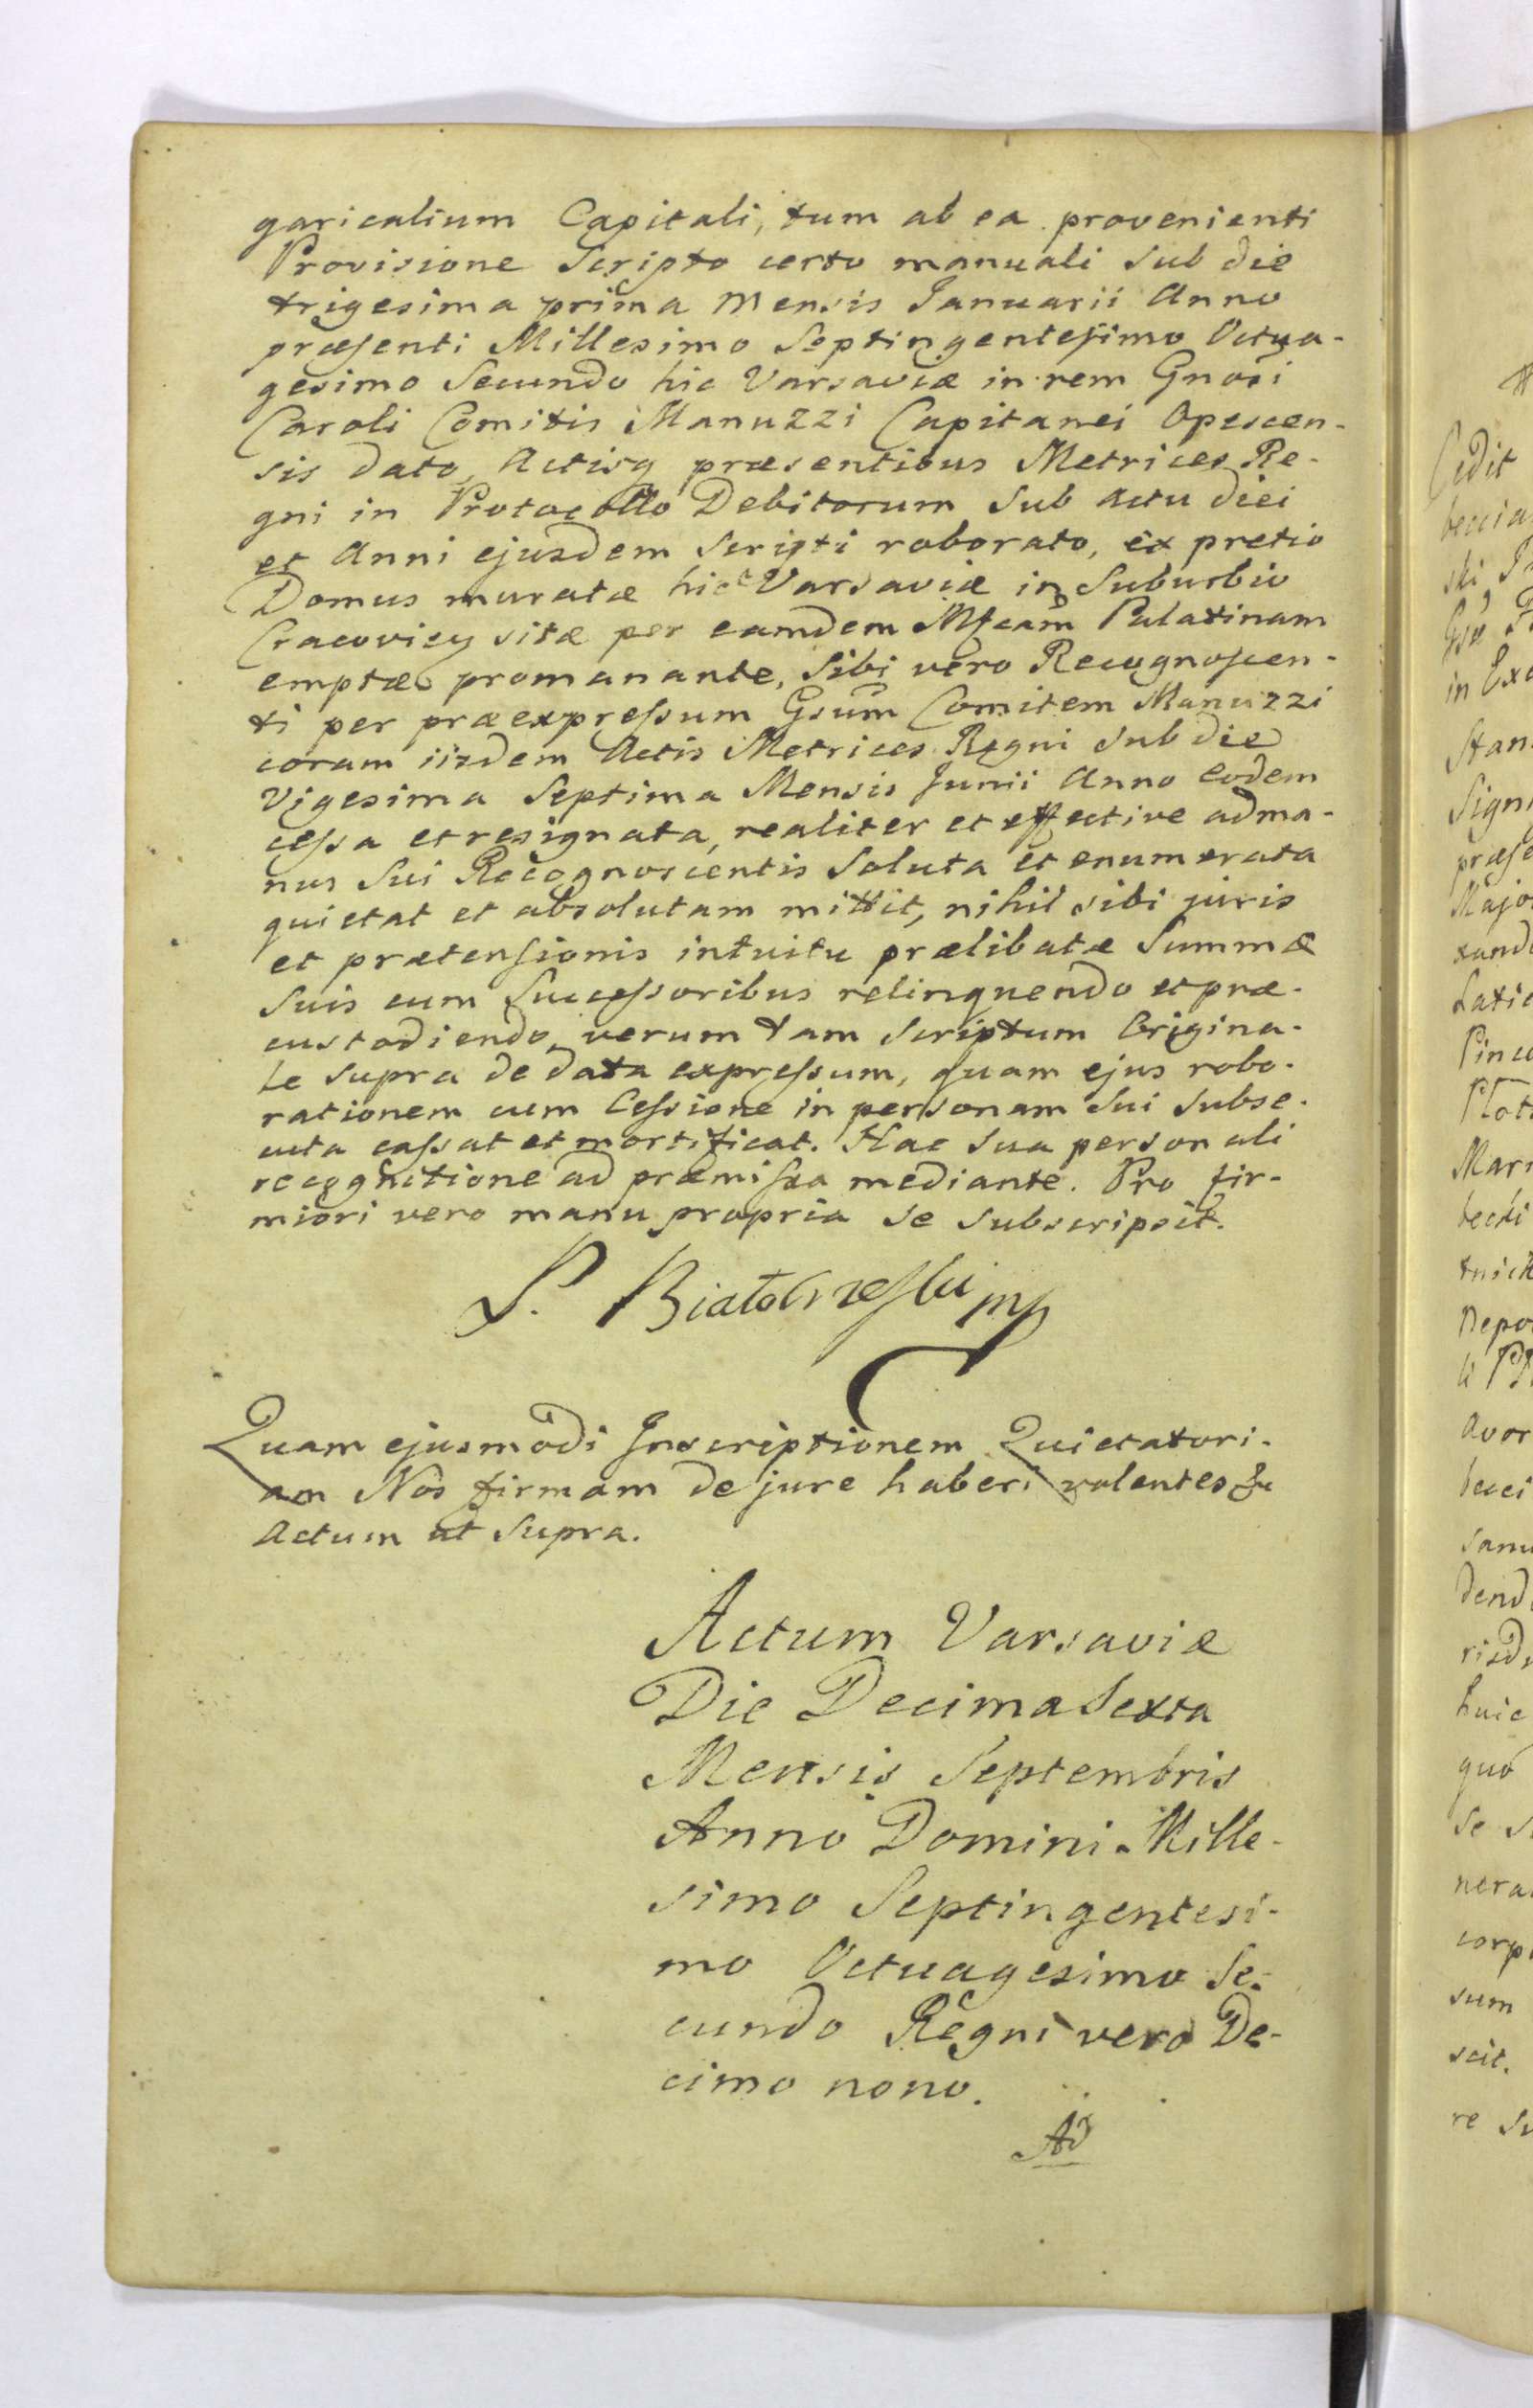 garicalium Capitali, tum ab ea provenienti
Provisione Scripto certo manuali Sub die
trigesima prima Mensis Januarii Anno
præsenti Millesimo Septingentesimo Octua-
gesimo Secundo hic Varsaviæ in rem Gnosi
Caroli Comitis Manuzzi Capitanei Opescen-
sis dato, Actisq præsentibus Metrices Re-
gni in Protocollo Debitorum Sub Actu diei
et Anni ejusdem Scripti roborato, ex pretio
Domus muratæ hic Varsaviæ in Suburbio
Cracovien sitæ per eamdem Mfcam Palatinam
emptæ promanante, Sibi vero Recognoscen-
ti per præexpressum Gsum Comitem Manuzzi
coram iisdem Actis Metrices Regni Sub die
Vigesima Septima Mensis Junii Anno eodem
cessa et resignata, realiter et effective ad ma-
nus Sui Recognoscentis Soluta et enumerata
quietat et absolutam mittit, nihil sibi juris
et prætensionis intuitu prælibatæ Summæ
Suis cum Successoribus relinquendo et præ-
custodiendo, verum tam Scriptum Origina-
le supra de data expressum, quam ejus robo-
rationem cum Cessione in personam Sui Subse-
cuta cassat et mortificat. Hac Sua personali
recognitione ad præmissa mediante. Pro fir-
miori vero manu propria se subscripsit.
S. Białobrzeski mp
Quam ejusmodi Inscriptionem Quietatori-
am Nos firmam de jure haberi volentes &c
Actum ut Supra.
Actum Varsaviæ
Die Decima Sexta
Mensis Septembris
Anno Domini Mille-
simo Septingentesi-
mo Octuagesimo Se-
cundo Regni vero De-
cimo nono.
Ad